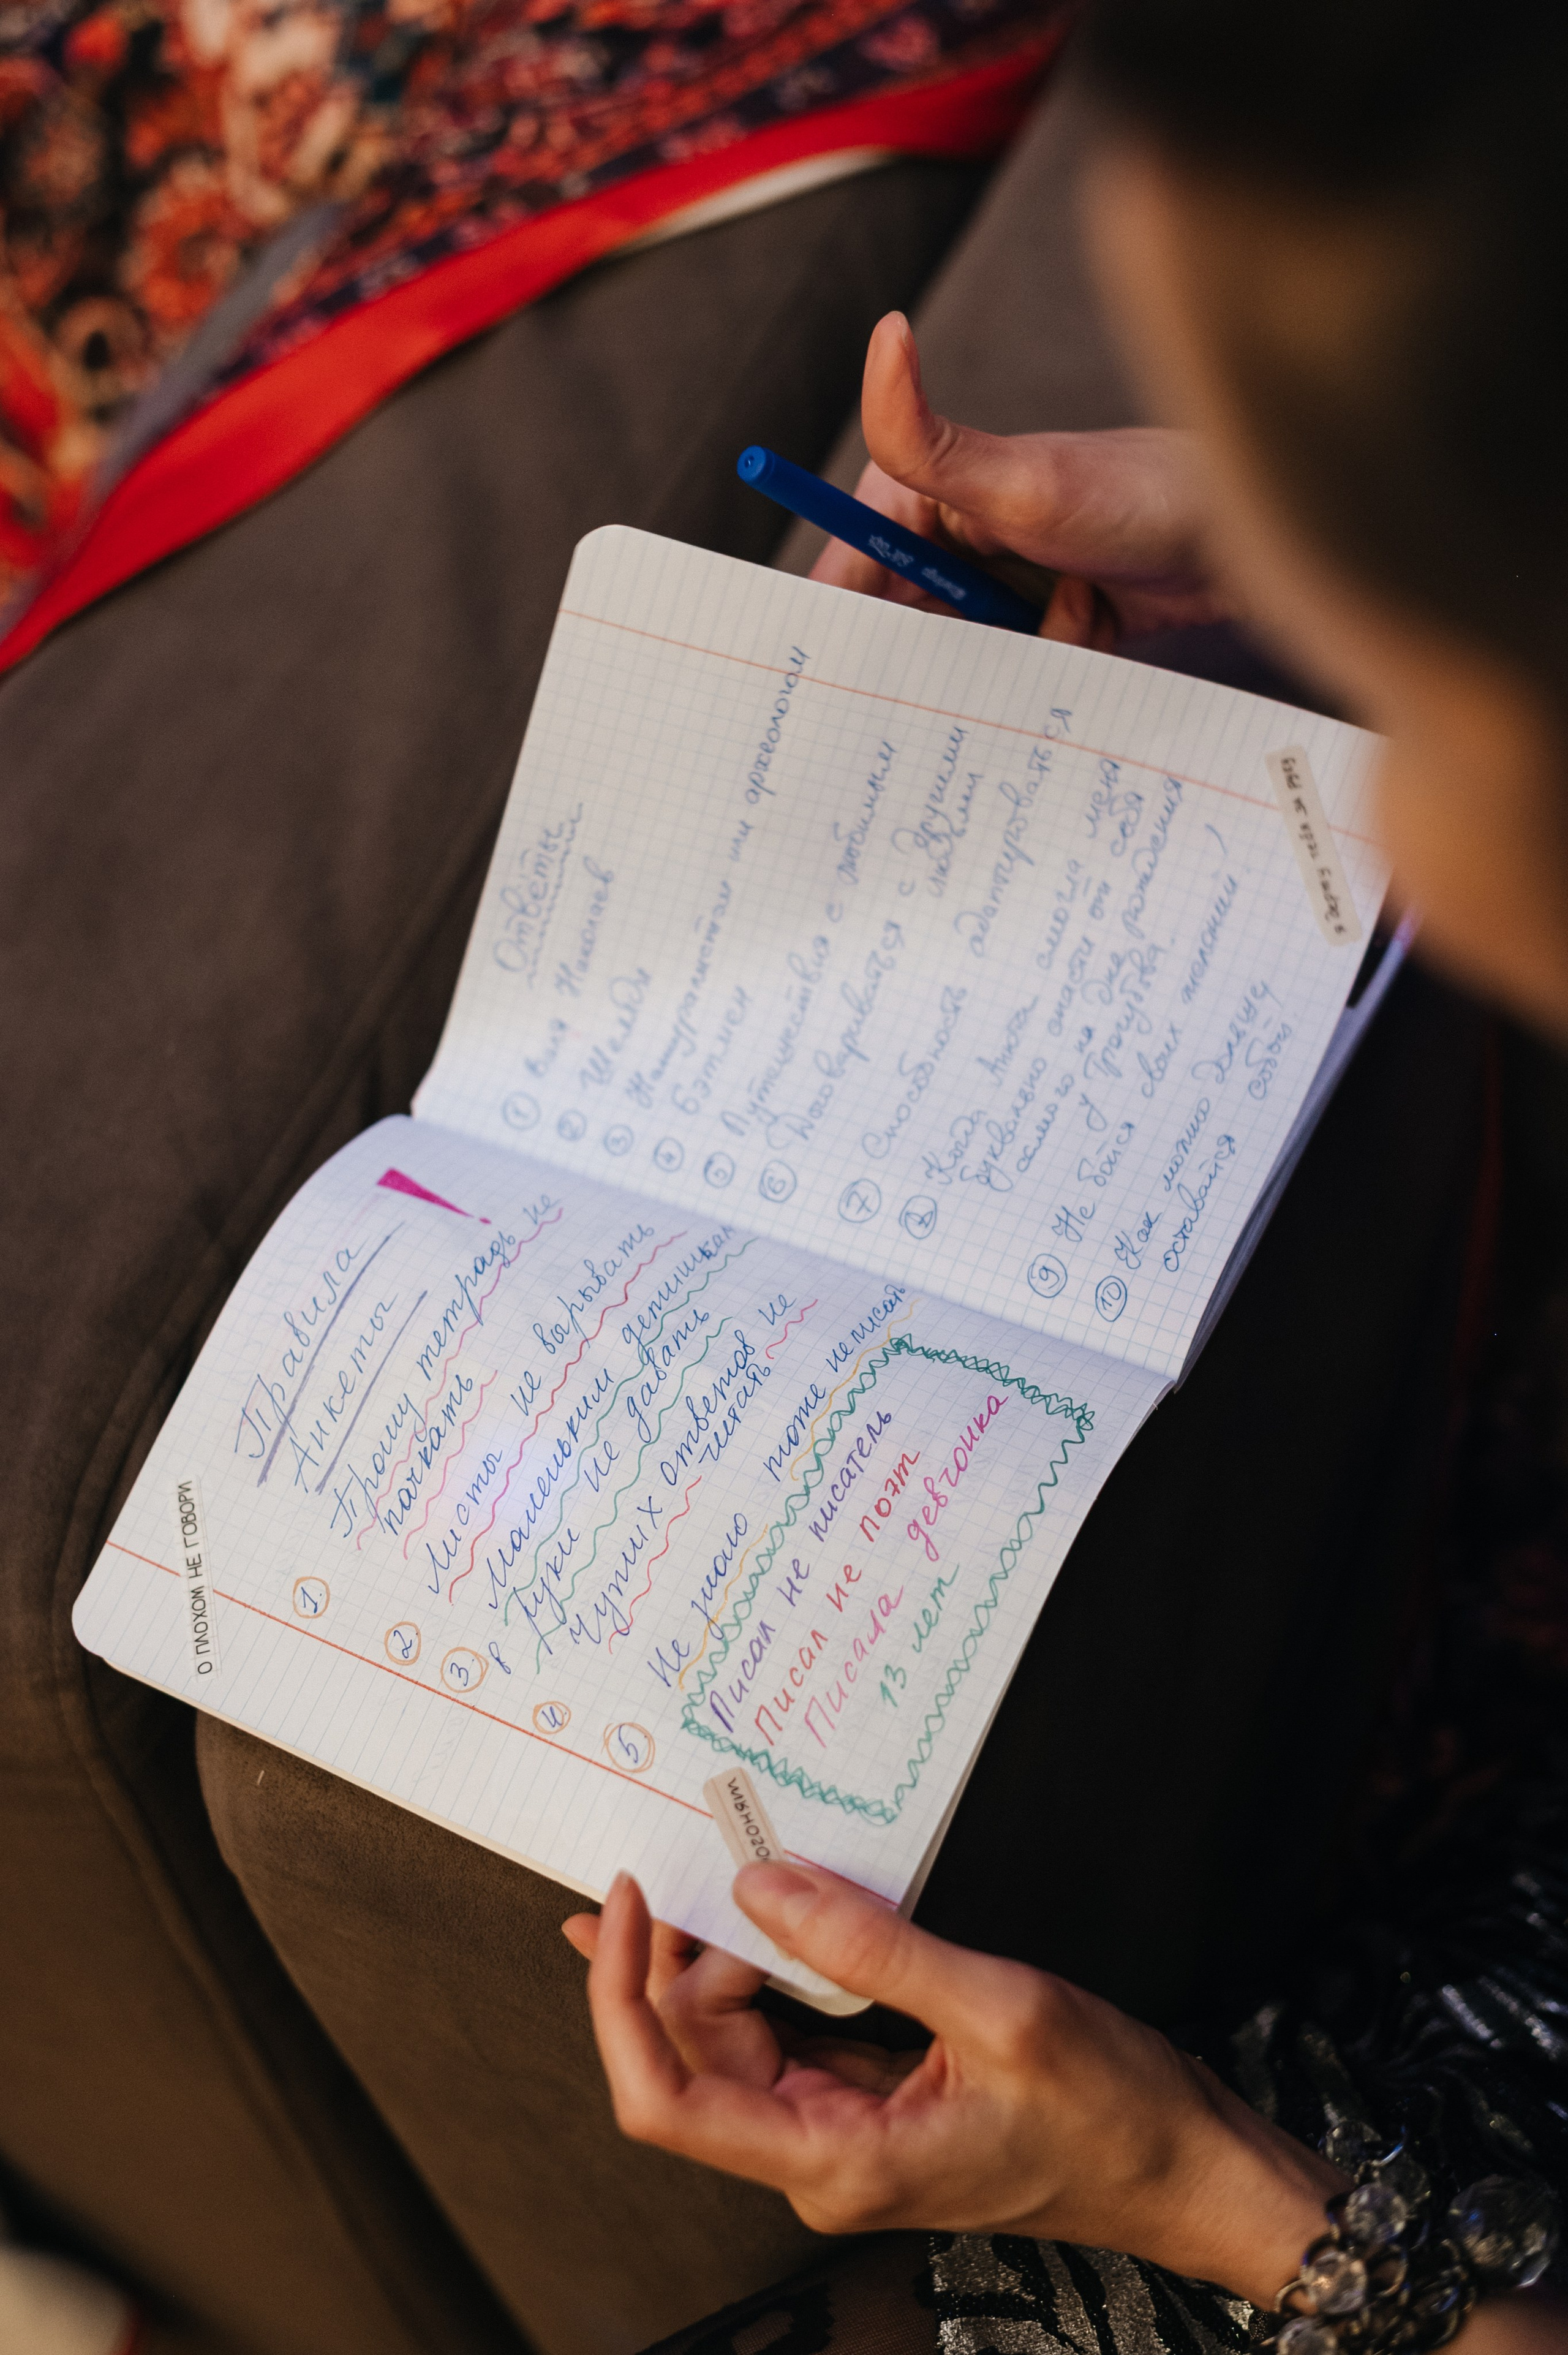 О ПЛОХОМ НЕ ГОВОРИ
Правила
Анкеты !
1. Прошу тетрадь не
пачкать
2. Листы не вырывать
3. Маленьким детишкам
в руки не давать
4. Чужих ответов не
читать
5. Не знаю тоже не писать
Писал не писатель
Писал не поэт
Писала девчонка
13 лет
Ответы
1 Ваня Николаев
2 Шелдон
3 Натуралистом или археологом
4 Бэтмен
5 Путешествия с любимым
6 Договариваться с другими
людьми
7 Способность адаптироваться
8 Когда Анюта смогла меня
буквально спасти от себя
самого на Дне рождения
у
9 Не бойся своих желаний!
10 Как можно дольше
оставайся собой.
я держу тебя за руку